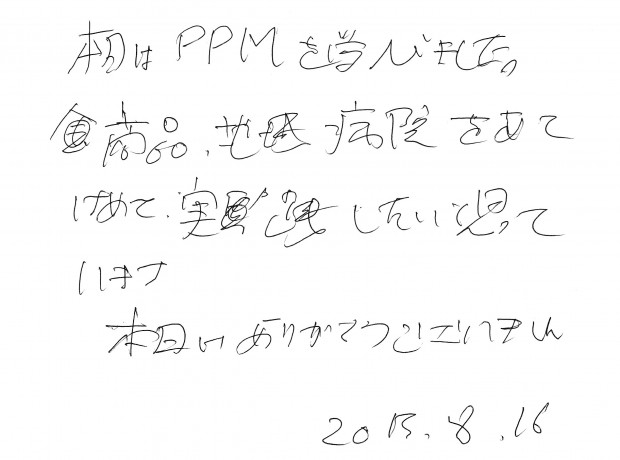 本日は PPM を学びました。
商品、地域 病院 をあて
はめて、実践 したいと思って
います
本日は ありがとうございました
2015. 8. 16